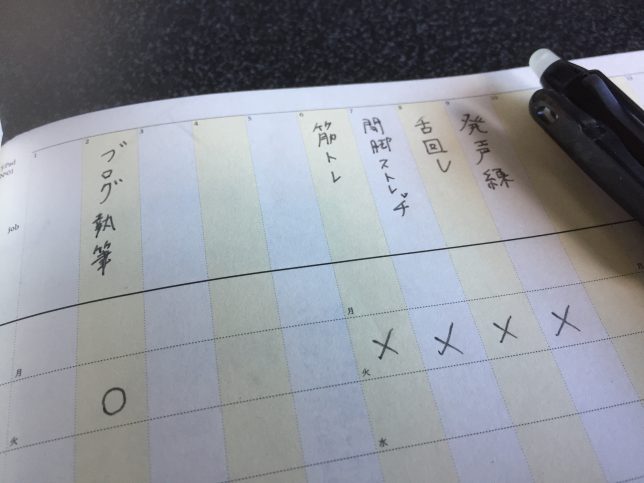 1 2 3 4 5 6 7 8 9 10
job
ブログ執筆
筋トレ
開脚ストレッチ
舌回し
発声練
月
月
○
× × × ×
火
火
水